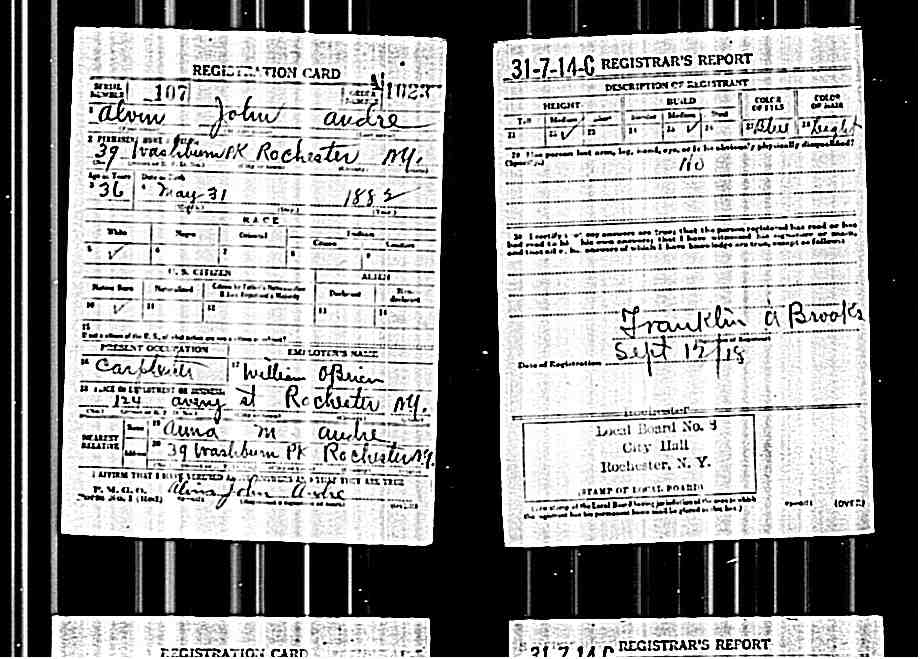 REGISTRATION CARD
SERIAL NUMBER 107 ORDER NUMBER 1023
1 Alvin John Andre
2 PERMANENT HOME ADDRESS
39 Washburn PK Rochester NY.
Age in Years Date of Birth
3 36 4 May 31 1882
(Year.)
RACE
White Negro Oriental Indian
Citizen
5 ✓ 6 7 8 9
U. S. CITIZEN ALIEN
Native Born Naturalized Citizen by Father's Naturalization Before Registrant's Majority Declarant Non-declarant
10 ✓ 11 12 13 14
15
PRESENT OCCUPATION EMPLOYER'S NAME
16 Carpenter 17 William O'Brien
18 PLACE OF EMPLOYMENT OR BUSINESS
124 st Rochester NY.
NEAREST RELATIVE Name 19 Anna M Andre
Address 20 39 Washburn PK Rochester NY.
I AFFIRM THAT I HAVE VERIFIED ABOVE ANSWERS AND THAT THEY ARE TRUE
P. M. G. O.
Form No. 1 (Red) Alvin John Andre
(OVER)
31-7-14-C REGISTRAR'S REPORT
DESCRIPTION OF REGISTRANT
HEIGHT BUILD COLOR OF EYES COLOR OF HAIR
Tall Medium Short Slender Medium Stout
21 22 ✓ 23 24 25 ✓ 26 27 Blue 28 Light
29 Has person lost arm, leg, hand, eye, or is he obviously physically disqualified?
(Specify.)
No
30 I certify that my answers are true; that the person registered has read or has
had read to him his own answers; that I have witnessed his signature or mark,
and that all of his answers of which I have knowledge are true, except as follows:
Franklin A Brooks
Date of Registration Sept 12/18
Rochester
Local Board No. 3
City Hall
Rochester, N. Y.
(STAMP OF LOCAL BOARD)
(The stamp of the Local Board having jurisdiction of the area in which
the registrant has his permanent home shall be placed in this box.)
(OVER)
REGISTRATION CARD
31-7-14-C REGISTRAR'S REPORT